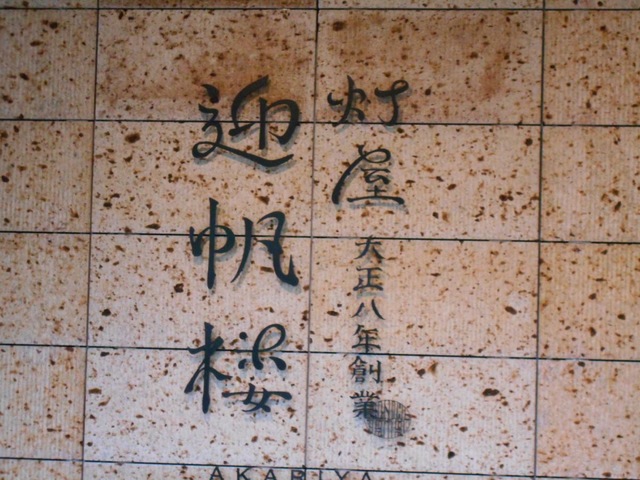 灯屋 大正八年創業
迎帆楼
AKARIYA